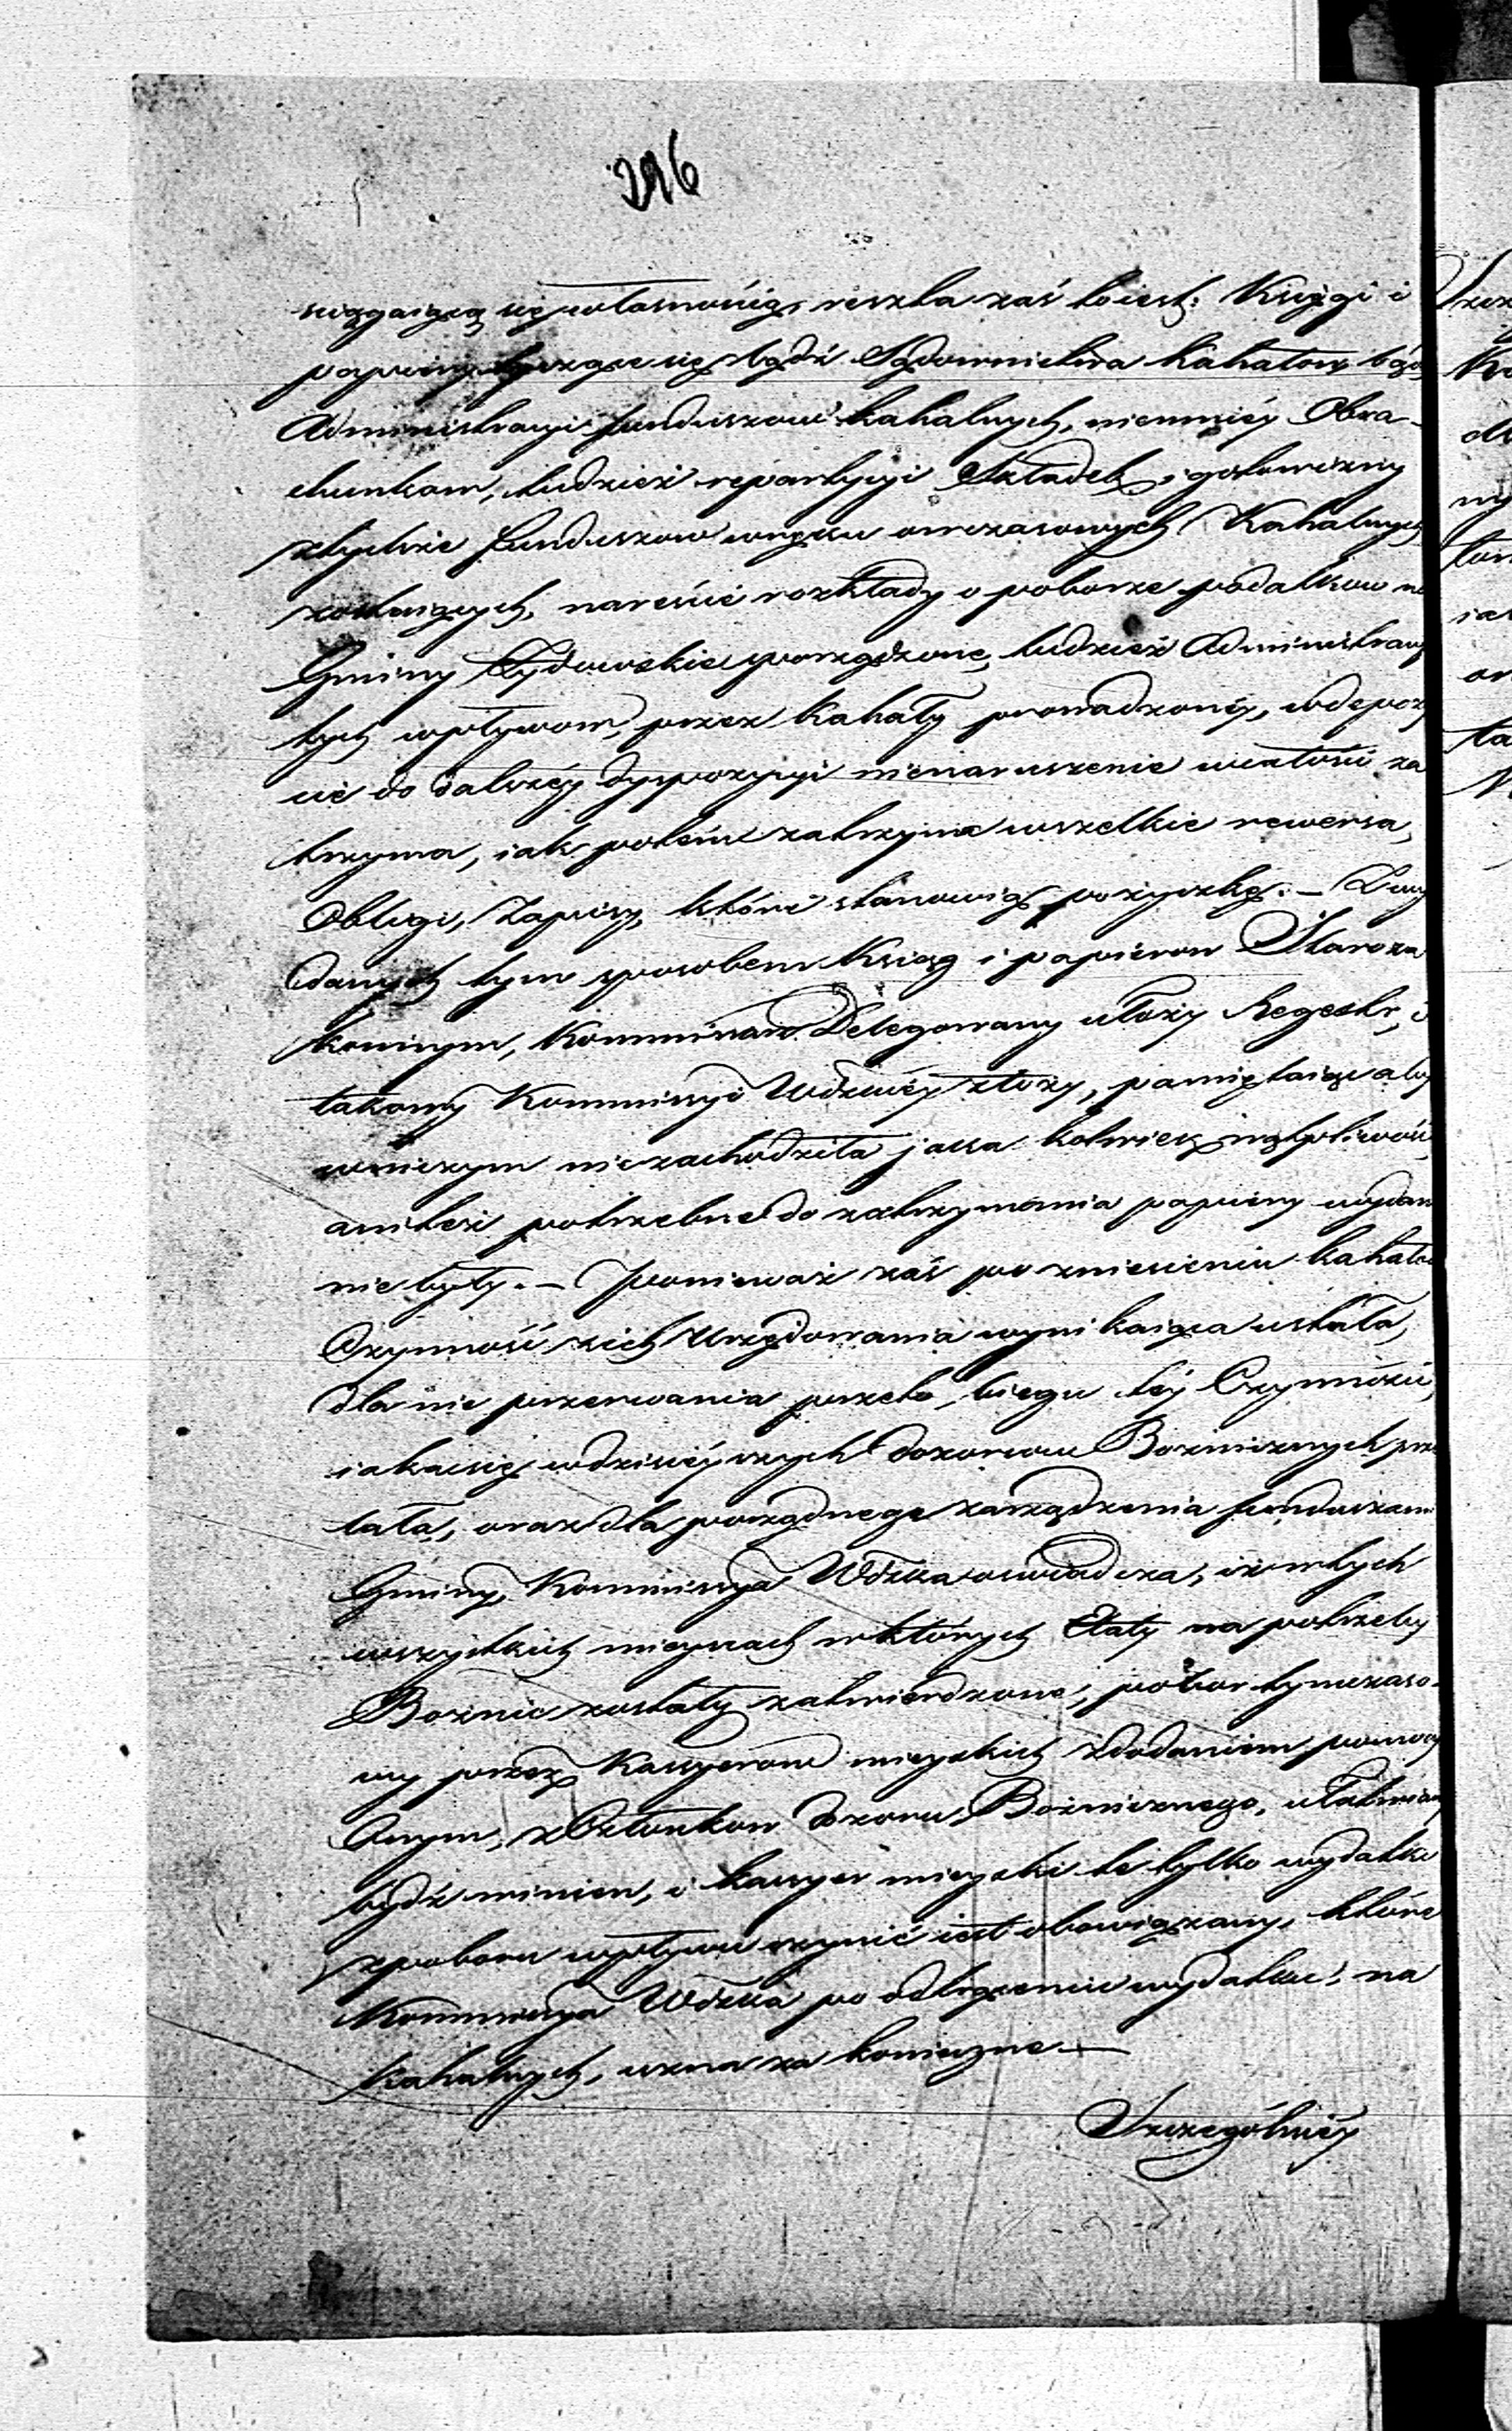 296
sciągaiącą się własnością, reszta zaś to iest: Księgi i
papiery tyczące się bądź Sądownictwa kahałow bądź
Administracyi funduszow kahalnych, niemniéy Obra-
chunkow, tudzież repartycyi Składek, i gotowizny
z tychże funduszow w ręku owczasowych Kahalnych
zostaiących, nareście rozkłady o poborze podatkow na
Gminy Żydowskie porządzone, tudzież Administracyi
tych wpływow, przez kahały prowadzonéy, w depozy
cie do dalszéy dyspozycyi nienaruszenie w całości za
trzyma, iak potém zatrzyma wszelkie rewersa,
Obligi, Zapisy, które stanowią pożyczkę. — Z wy
danych tym sposobem Ksiąg i papierow Staroza
konnym, Kommissarz Delegowany ułoży Regestr, i
takowy Kommissyi Wdzkiéy złoży, pamiętaiąc aby
w niczym nie zachodziła jaka kolwiek wątpliwość,
anitéż potrzebne do zatrzymania papiery wydane
nie były. — Ponieważ zaś po zniesieniu kahałow
Czynność z ich Urzędowania wynikaiąca ustała,
dla nie przerwania przeto biegu téy Czynności,
iaka się w dzisiéyszych dozorow Bożnicznych prze
lała, oraz dla porządnego zarządzenia funduszami
Gminy, Kommissya Wdzka oswiadcza, iż w tych
wszystkich mieyscach w których Etaty na potrzeby
Bożnic zostały zatwierdzone, pobor tymczaso-
wy przez Kassyerow mieyskich z dodaniem pomocy
Onym, z Członkow dozoru Bożnicznego, ułatwiany
bydź winien, i kassyer mieyski te tylko wydatki
z poboru wpływu czynić iest obowiązany, które
Kommissya Wdzka po odtrąceniu wydatku, na
kahalnych, uzna za konieczne —
Szczególniéy